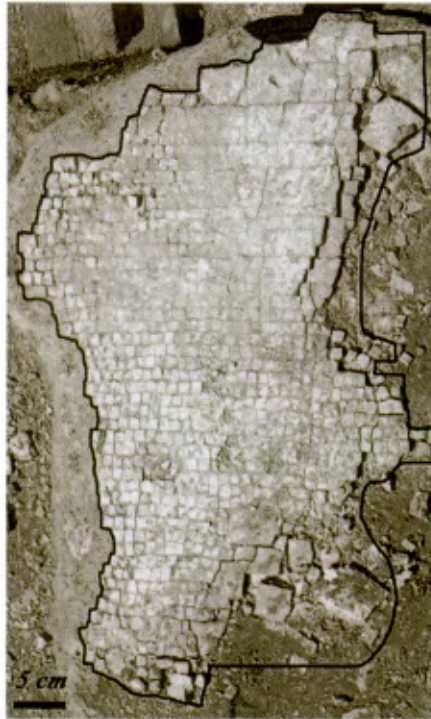 5 cm